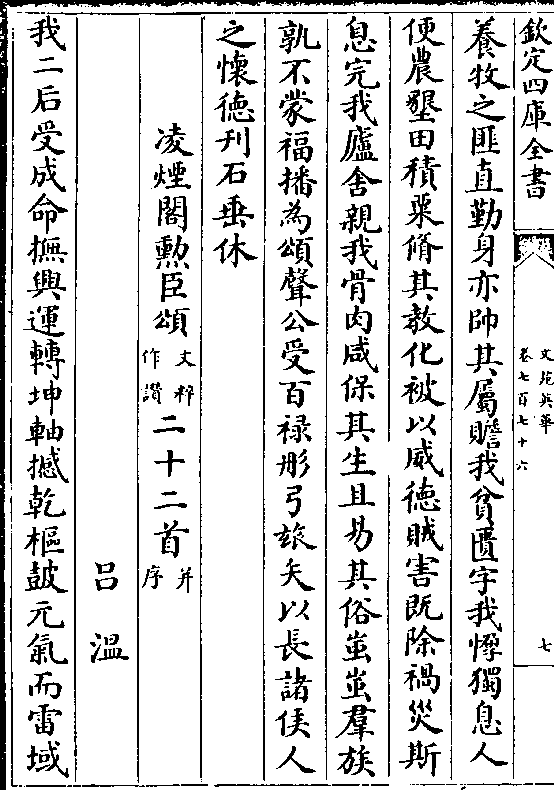 欽定四庫全書
文苑英華
卷七百七十六
七
養牧之匪直勤身亦帥其屬贍我貧匱字我惸獨息人
使農墾田積粟脩其教化被以威德賊害既除禍災斯
息完我廬舍親我骨肉咸保其生且易其俗蚩蚩羣族
孰不蒙福播為頌聲公受百禄彤弓玈矢以長諸侯人
之懷德刋石垂休
凌煙閣勲臣頌文粹作讃二十二首并序
吕溫
我二后受成命撫興運轉坤軸撼乾樞皷元氣而雷域